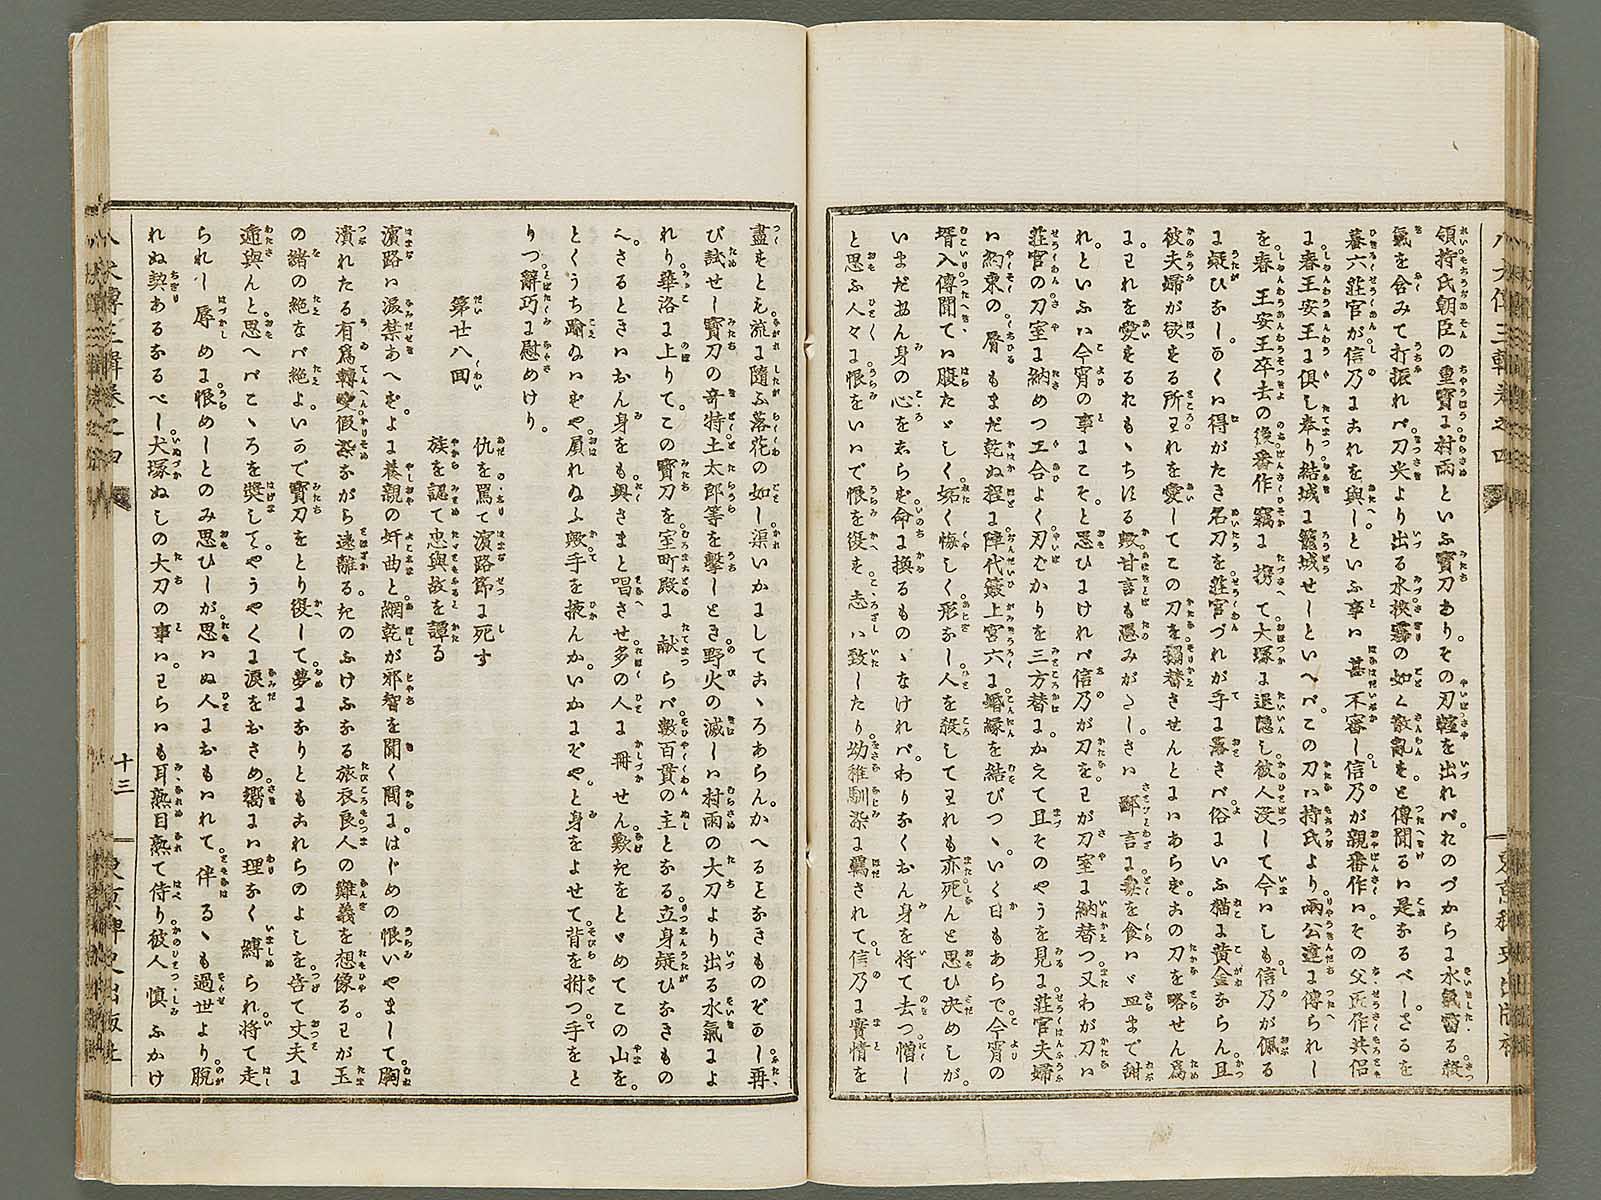 領持氏朝臣の重寶に村雨といふ寶刀あり。その刃鞘を出れバ。おのづからに水氣霤る。殺
氣を含みて打振れバ。刀尖より出る水挾霧の如く散亂すと傳聞るハ是なるべし。さるを
蟇六莊官が信乃にこれを與へしといふ事ハ甚不審し。信乃が親番作ハ。その父匠作共侶
に。春王安王に倶し奉り結城に籠城せしといへバ。この刀ハ持氏より兩公達に傳られし
を。春王安王卒去の後番作竊に携て大塚に退隱し。彼人沒して今ハしも信乃が佩る
に疑ひなし。かくハ得がたき名刀を莊官づれが手に落さバ俗にいふ猫に黄金ならん。且
彼夫婦が欲する所われを愛してこの刀を搨替させんとにハあらず。この刀を略せん爲
に。われを愛するおもゝちは假甘言も憑みがたし。さハ鄙言に毒を食ハゞ皿まで甜
れ。といふハ今宵の事にこそ。と思ひにけれバ信乃が刀を。わが刀室に納替つ又わが刀ハ
莊官の刀室に納めつ工合よく刃むかりを三方替にかえて且そのやうを見る。莊官夫婦
ハ約束の。脣もまだ乾ぬ程に。陣代簸上宮六に婚縁を結びつゝ。いく日もあらで今宵の
壻入傳聞てハ腹たゞしく妬く悔しく形なし。人を殺してわれも亦死んと思ひ決めしが。
いまだおん身の心をしらず命に換るものゝなけれバ。わりなくおん身を將て去つ。憎し
と思ふ人々に恨をいハで恨を復す。こゝろざしハ致したり。幼稚馴染に羈されて。信乃に實情を
盡すとも。流に隨ふ落花の如し。渠いかにしてこゝろあらん。かへるときなきものぞかし。再
び試せし寶刀の奇特土太郎等を擊しとき。野火の滅しハ村雨の大刀より出る水氣によ
れり。華洛に上りて。この寶刀を室町殿に献らバ。數百貫の主となる立身疑ひなきもの
へ。さるときハおん身をも。奧さまと唱させ。多の人に冊せん歎きをとゞめてこの山を。
とくうち踰ゐハずや屓れゐふ歟手を掖んか。いかにぞや。と身をよせて背を拊つ手をと
りつ辭巧に慰めけり。
第廿八回
仇を罵て濱路節に死す
族を認て忠與故を譚る
濱路ハ涙禁あへず。よに養親の奸曲と。網乾が邪智を聞く間に。はじめの恨いやまして。胸
潰れたる有爲轉變假染ながら遠離る。きのふけふなる旅衣良人の難義を想像る。わが玉
の緒の絶なバ絶よ。いかで寶刀をとり復して夢になりともこれらのよしを告て丈夫に
逓與んと思へバこゝろを奬して。やうやくに涙をおさめ。嚮にハ理なく縛られ將て走
られし辱めに恨めしとのみ思ひしが。思ハぬ人におもハれて。伴るゝも過世より。脱
れぬ契あるなるべし。犬塚ぬしの大刀の事ハ。わらハも耳熟目熟て侍り。彼人愼ふかけ
八犬傳三輯卷之四
十三
東京稗史出版社